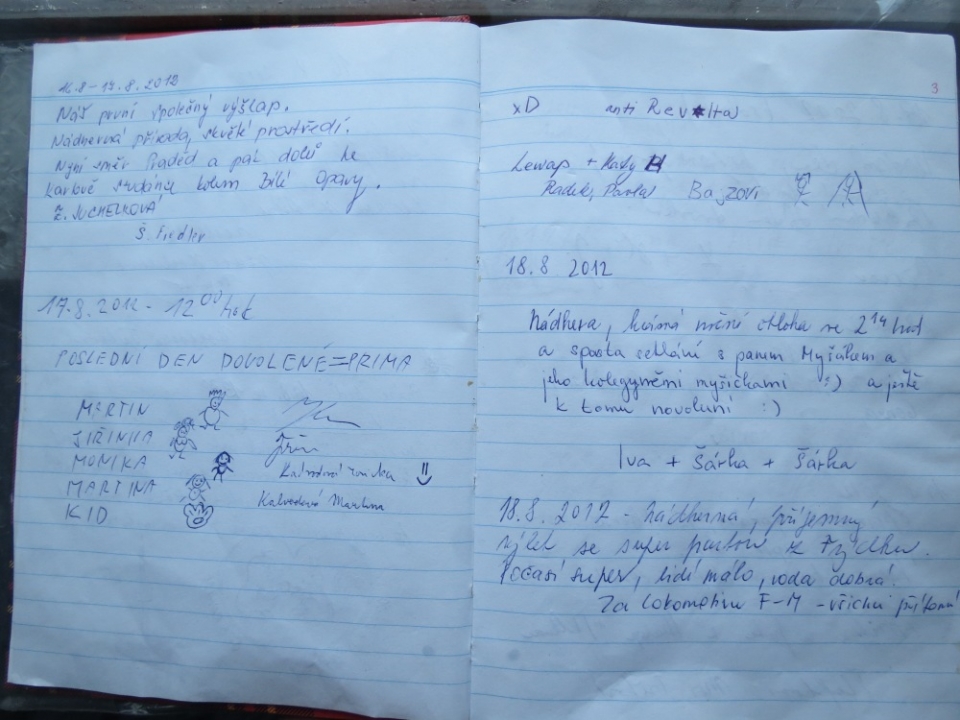 16.8-17.8.2012
Náš první společný výšlap.
Nádherná příroda, skvělé prostředí.
Nyní směr Praděd a pak dolů ke
Karlově Studánce kolem Bílé Opavy.
Ž. JUCHELKOVÁ
Š. Fiedler
17.8.2012 - 12 00 hod
POSLEDNÍ DEN DOVOLENÉ = PRIMA
MARTIN
JIŘINKA
MONIKA
MARTINA
KID
Kalvodová Martina
3
xD anti Revolta
Lewap + Kady
Radek, Pavla Bajzovi
18.8 2012
Nádhera, krásná noční obloha ve 2 14 hod
a spousta setkání s panem Myšákem a
jeho kolegyněmi myšičkami :) a ještě
k tomu novoluní :)
Iva + Šárka + Šárka
18.8.2012 - nádherný, příjemný
výlet se super partou z Frýdku.
Počasí super, lidí málo, voda dobrá.
Za lokomotivu F-M - všichni přítomní